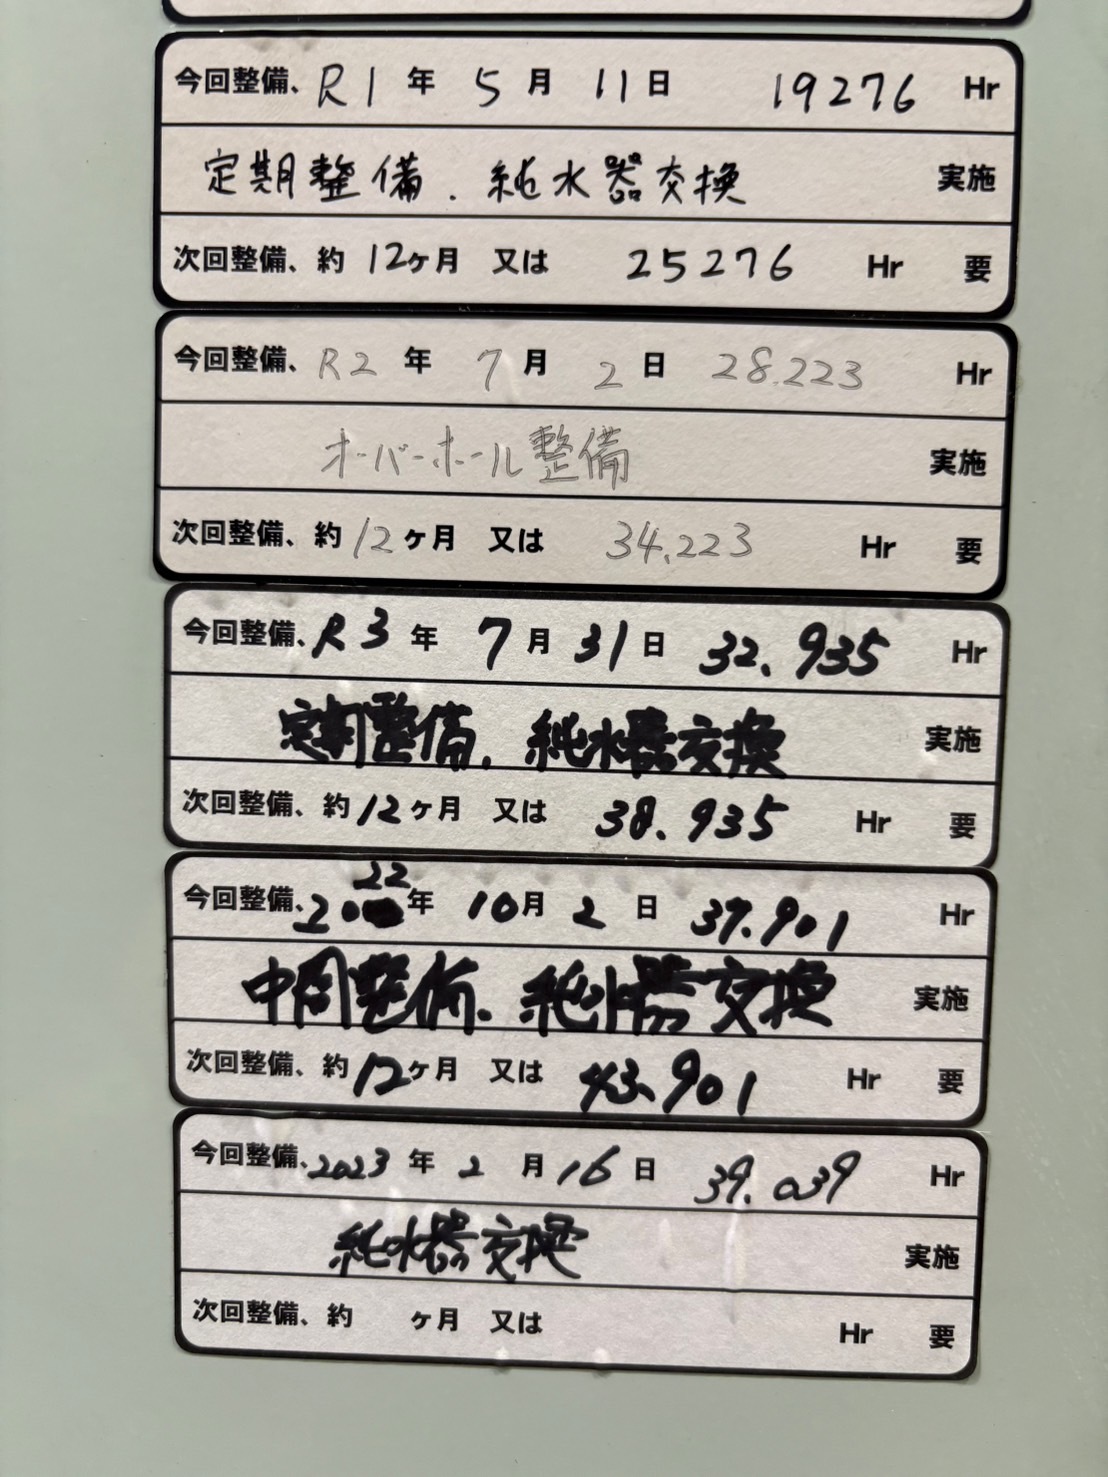 今回整備、R1年 5月 11日 19276 Hr
定期整備．純水器交換 実施
次回整備、約12ヶ月 又は 25276 Hr 要
今回整備、R2年 7月 2日 28.223 Hr
オーバーホール整備 実施
次回整備、約12ヶ月 又は 34.223 Hr 要
今回整備、R3年 7月31日 32.935 Hr
定期整備．純水器交換 実施
次回整備、約12ヶ月 又は 38.935 Hr 要
今回整備、2022年 10月 2日 37.901 Hr
中間整備．純水器交換 実施
次回整備、約12ヶ月 又は 43.901 Hr 要
今回整備、2023年 2月16日 39.039 Hr
純水器交換 実施
次回整備、約 ヶ月 又は Hr 要